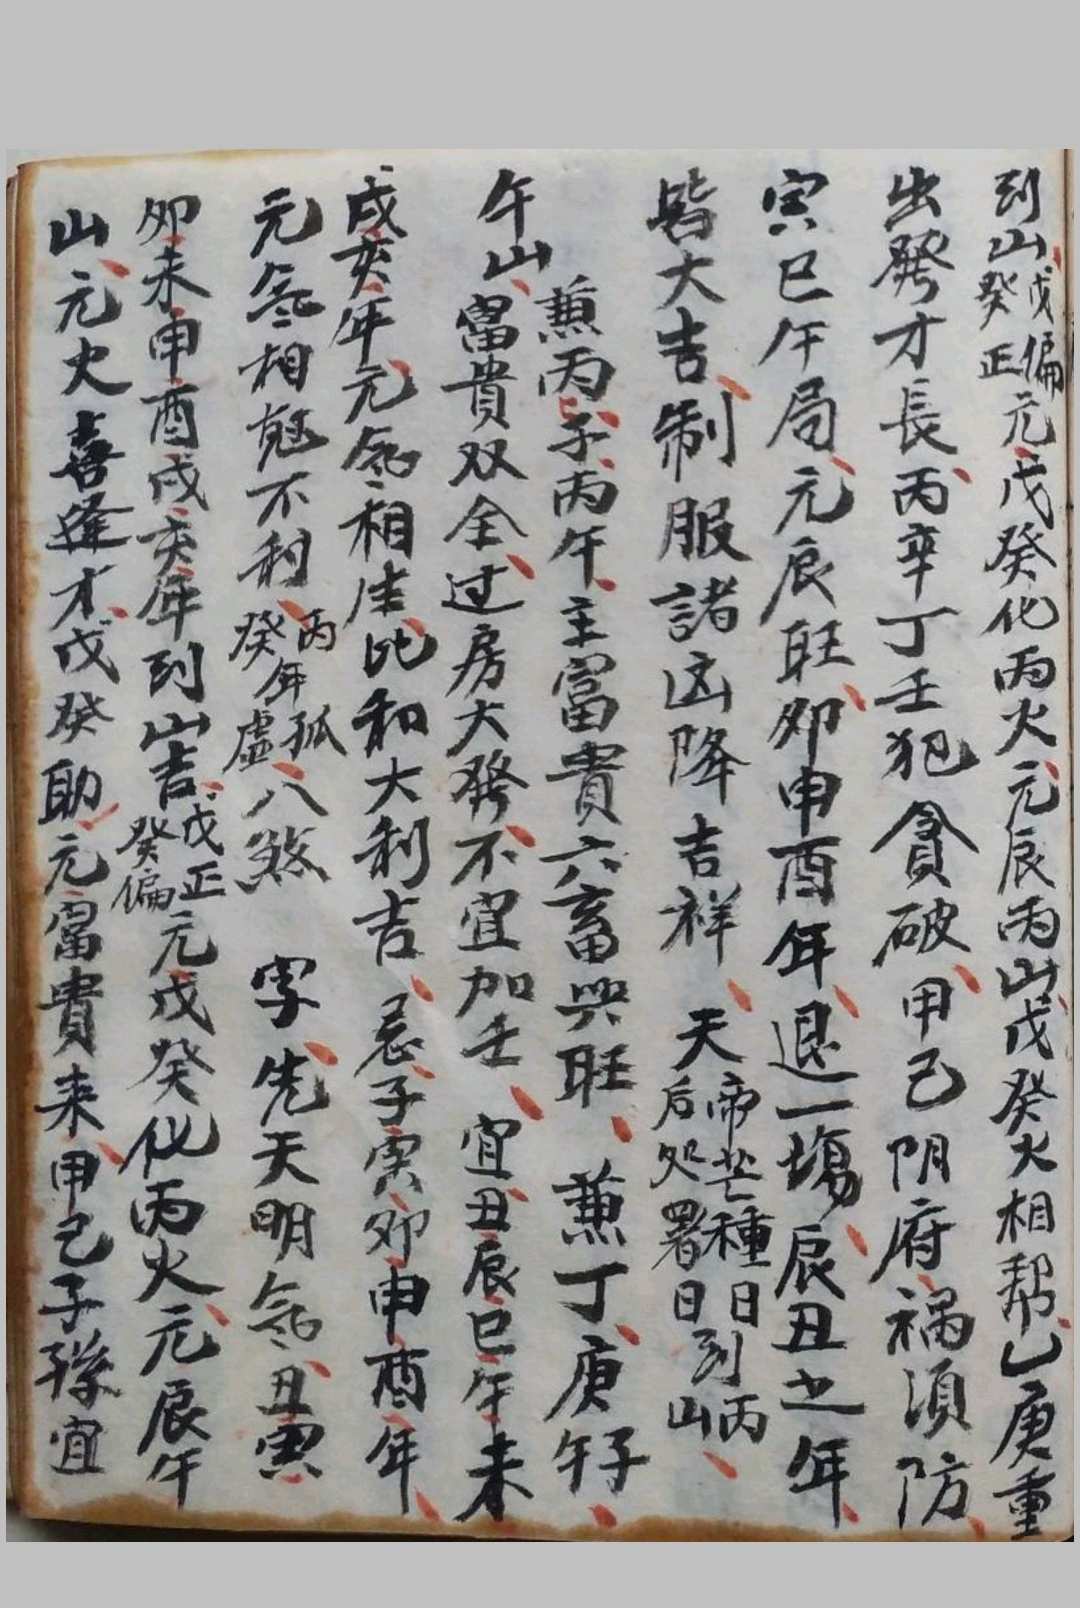 到山戊偏癸正元戊癸化丙火元辰丙山戊癸火相幫乙庚重
出發才長丙辛丁壬犯貪破甲己阴府禍須防
寅巳午局元辰旺卯申酉年退一塲辰丑之年
皆大吉制服諸凶降吉祥天帝芒種日后処署日到丙山
兼丙子丙午主富貴六畜興旺兼丁庚子午
午山富貴双全过房大發不宜加壬宜丑辰巳午未
戌亥年元氣相生比和大利吉忌子寅卯申酉年
元氣相尅不利丙癸年孤虛八煞字先天明氣丑寅
卯未申酉戌亥年到山吉戊正癸偏元戊癸化丙火元辰午
山元火喜逢才戊癸助元富貴来甲己子孫宜